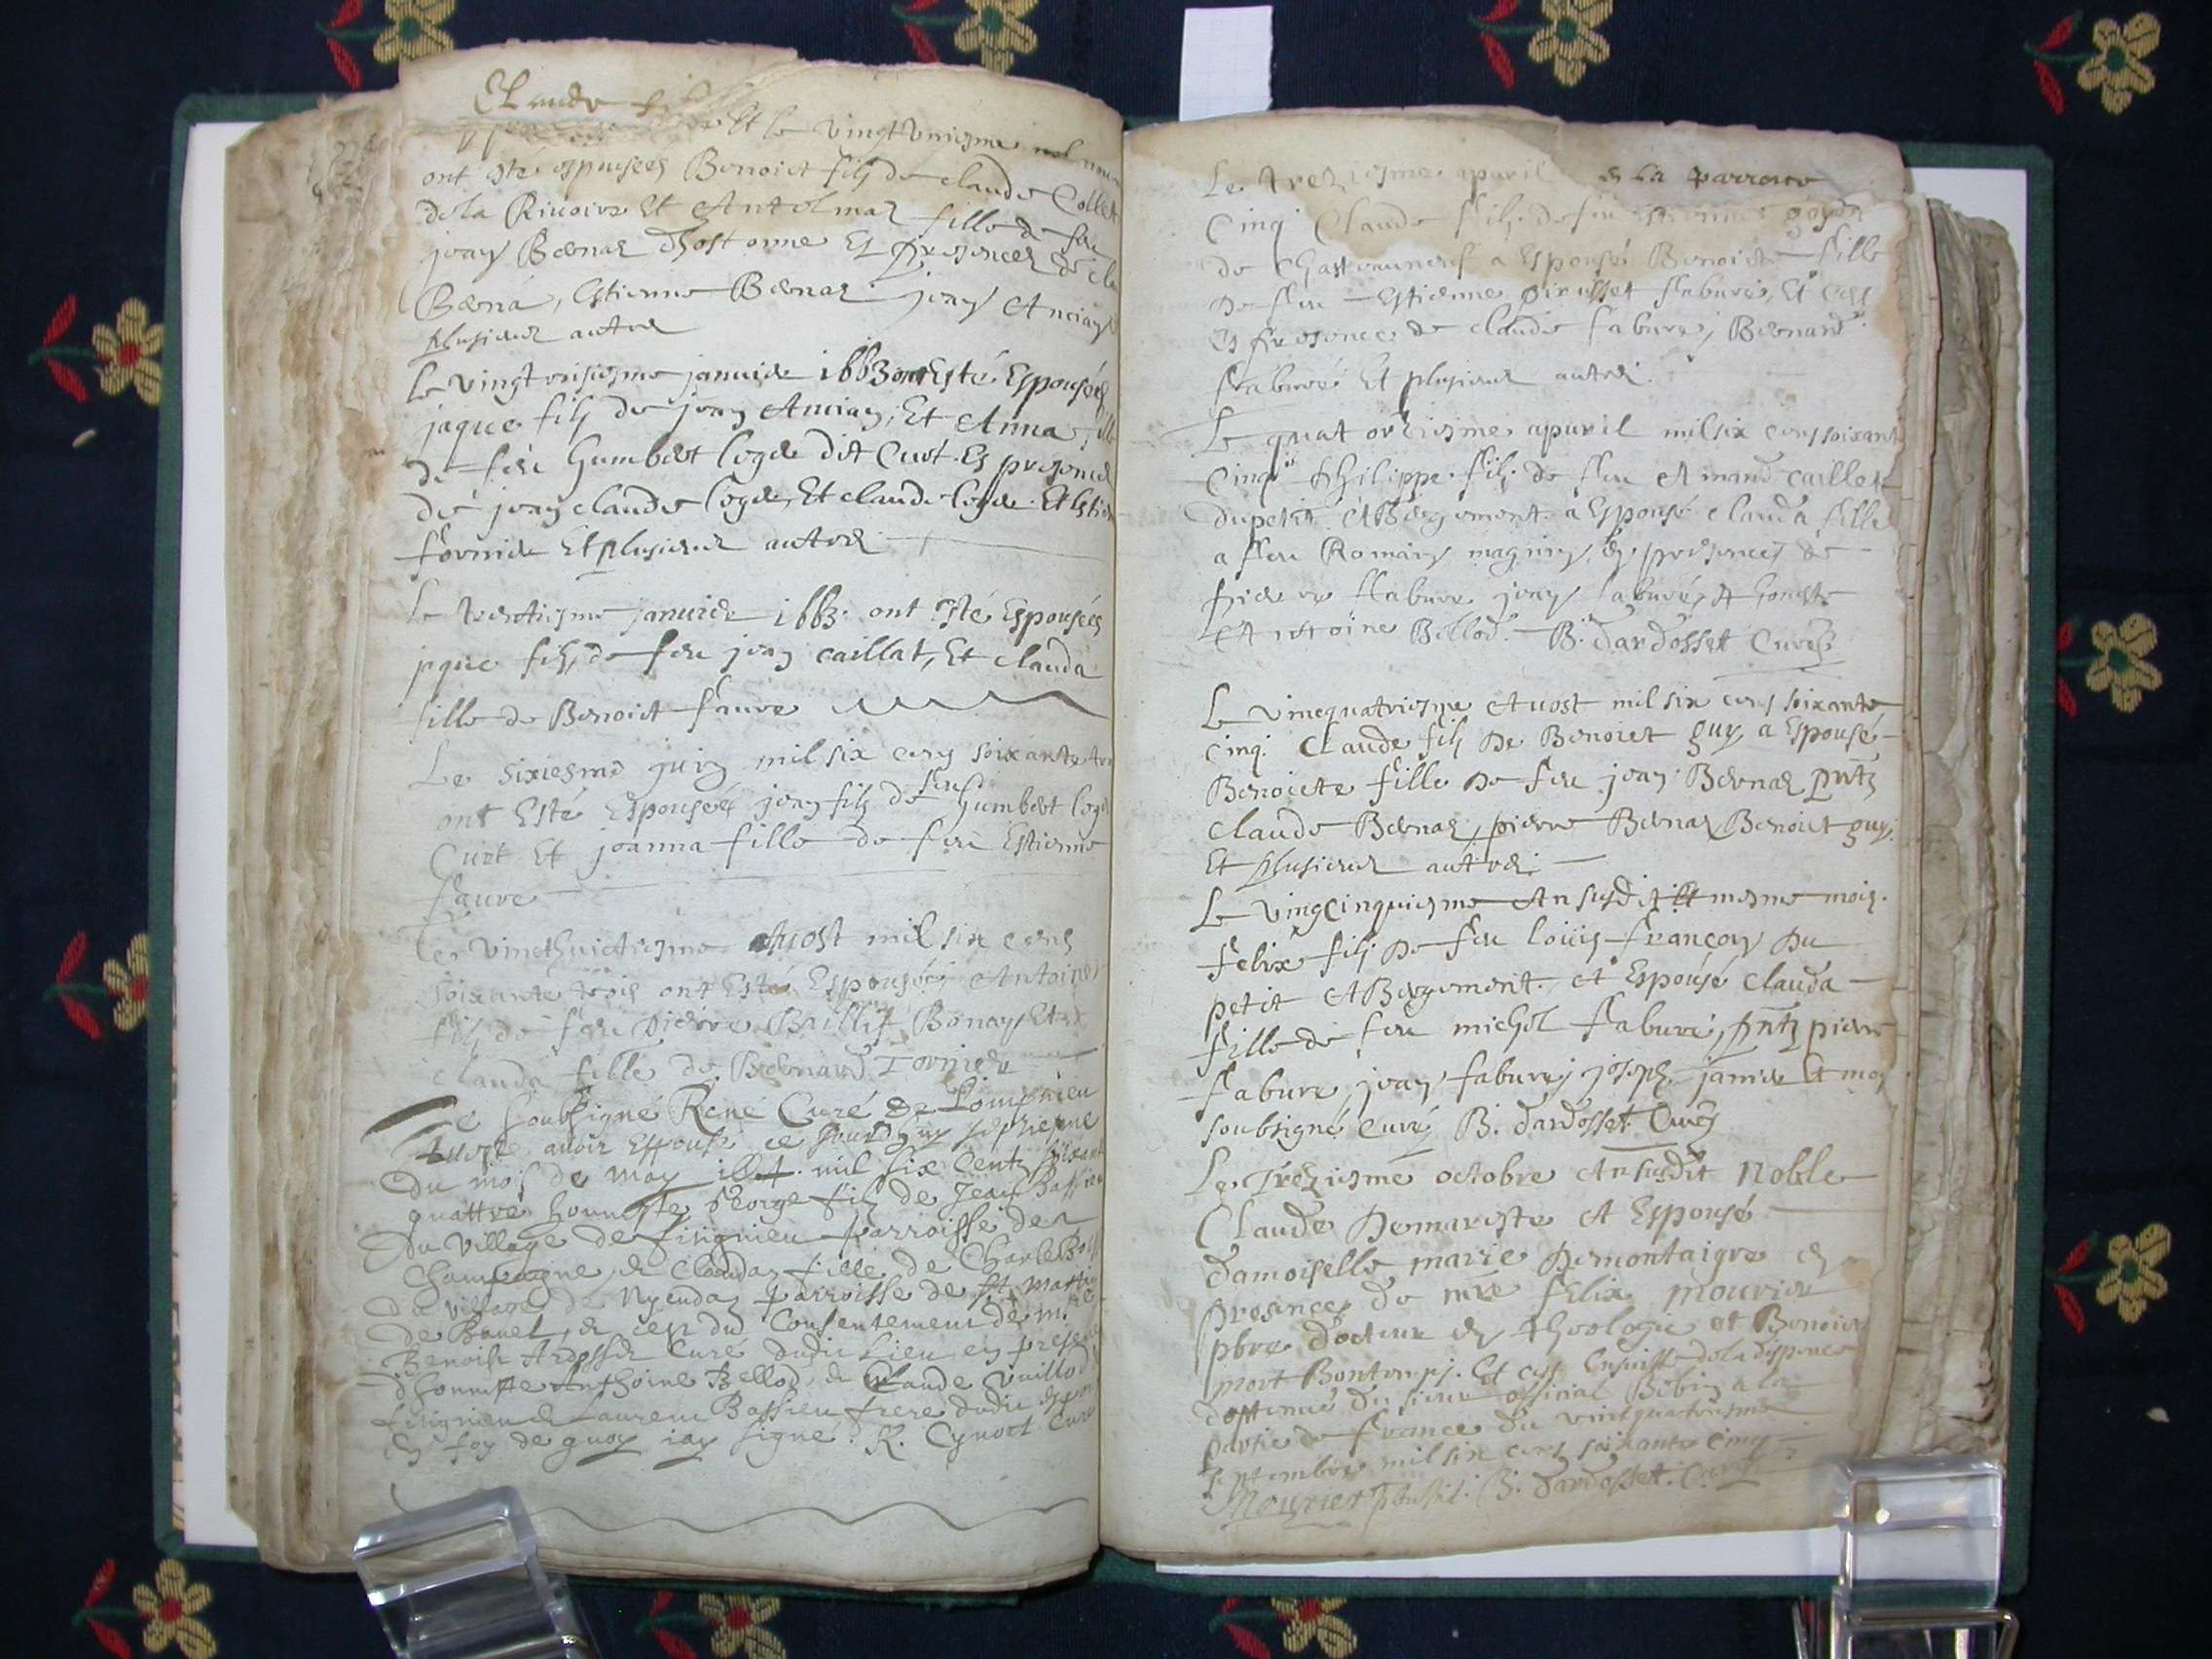 Claude
Et le vingt uniesme
ont esté espousees Benoict filz de claude Collet
de la Riuoire Et Antelmaz fille de feu
jean Bernaz dhostonne En presences de cla
Berna, Estienne Bernaz jean Anciay
plusieurs autres
Le vingt troisiesme januier 1663 ont Esté Espousées
jaque filz de jean Anciay, Et Anna fille
de feu humbert loger dit Curt En presences
de jean claude loger, Et claude loger Et Estien
fornier Et plusieurs autres
Le trentiesme januier 1663. ont Esté Espousées
jaque filz de feu jean caillat, Et clauda
fille de Benoict faure
Le sixiesme juin mil six cens soixante tro
ont Esté Espousées jean filz de feu humbert loge
Curt Et joanna fille de feu Estienne
faure
Le vincthuictiesme Auost mil six cens
soixante trois ont Esté Espousées Antoine
filz de feu Pierre Baillif Bonay, Et
clauda fille de Bernard Tornier
Ie soubsigné René Curé de Pompnieu
Atteste auoir Espousé ce jourdhuy
du mois de may mil six Centz soixant
quattre honneste George filz de Jean Bassieu
du Village de fitignieu parroisse de
Champagne, & Claudaz fille de Charle
du village de Nyendaz parroisse de St Martin
de Bauel, & ce du Consentement de mre
Benoist Ardosset Curé dudit Lieu en presence
dhonneste Anthoine Bellod, & Claude Vuillod
fitignieu & Laurent Bassieu frere dudit
En foy de quoy iay signé. R. Cynoct Curé
Le treziesme apuril en La parroice
Cinq Claude filz de feu Estienne
de Chasteauneuf a Espousé Benoicte fille
De feu Estienne Fabure, Et ce
En presence de claude fabure, Bernard
Fabure Et plusieurs autres.
Le quatorziesme apuril mil six cens soixante
Cinq Philippe filz de feu Amand caillet
du petit Abergement a Espousé clauda fille
a feu Romain magnin, En presences de
Pierre Fabure jean fabure, & honeste
Antoine Bellod. B. dardosset Curé
Le vincquatriesme Auost mil six cens soixante
cinq. Claude filz De Benoict guy a Espousé
Benoicte fille De feu jean Bernaz pntz
claude Bernaz, pierre Bernaz Benoict guy
Et plusieurs autres
Le vingcinquiesme An susdit Et mesme mois.
Felix filz De feu loüis françois Du
petit Abergement. A Espousé Clauda
fille de feu michel Fabure, pntz pierre
Fabure, jean fabure, joseph janier Et moy
soubsigné Curé B. dardosset Curé
Le Treziesme octobre An susdit Noble
Claude Demareste A Espousé
damoiselle marie Demontaigre En
presences de mre felix mourier
pbre docteur En theologie et Benoict
mort Bontemps. Et ce Ensuitte de la dispence
obtenue du sieur official Bibin a la
partie de France du vintquatriesme
septembre mil six cens soixante cinq
Mourier B. dardosset. Curé